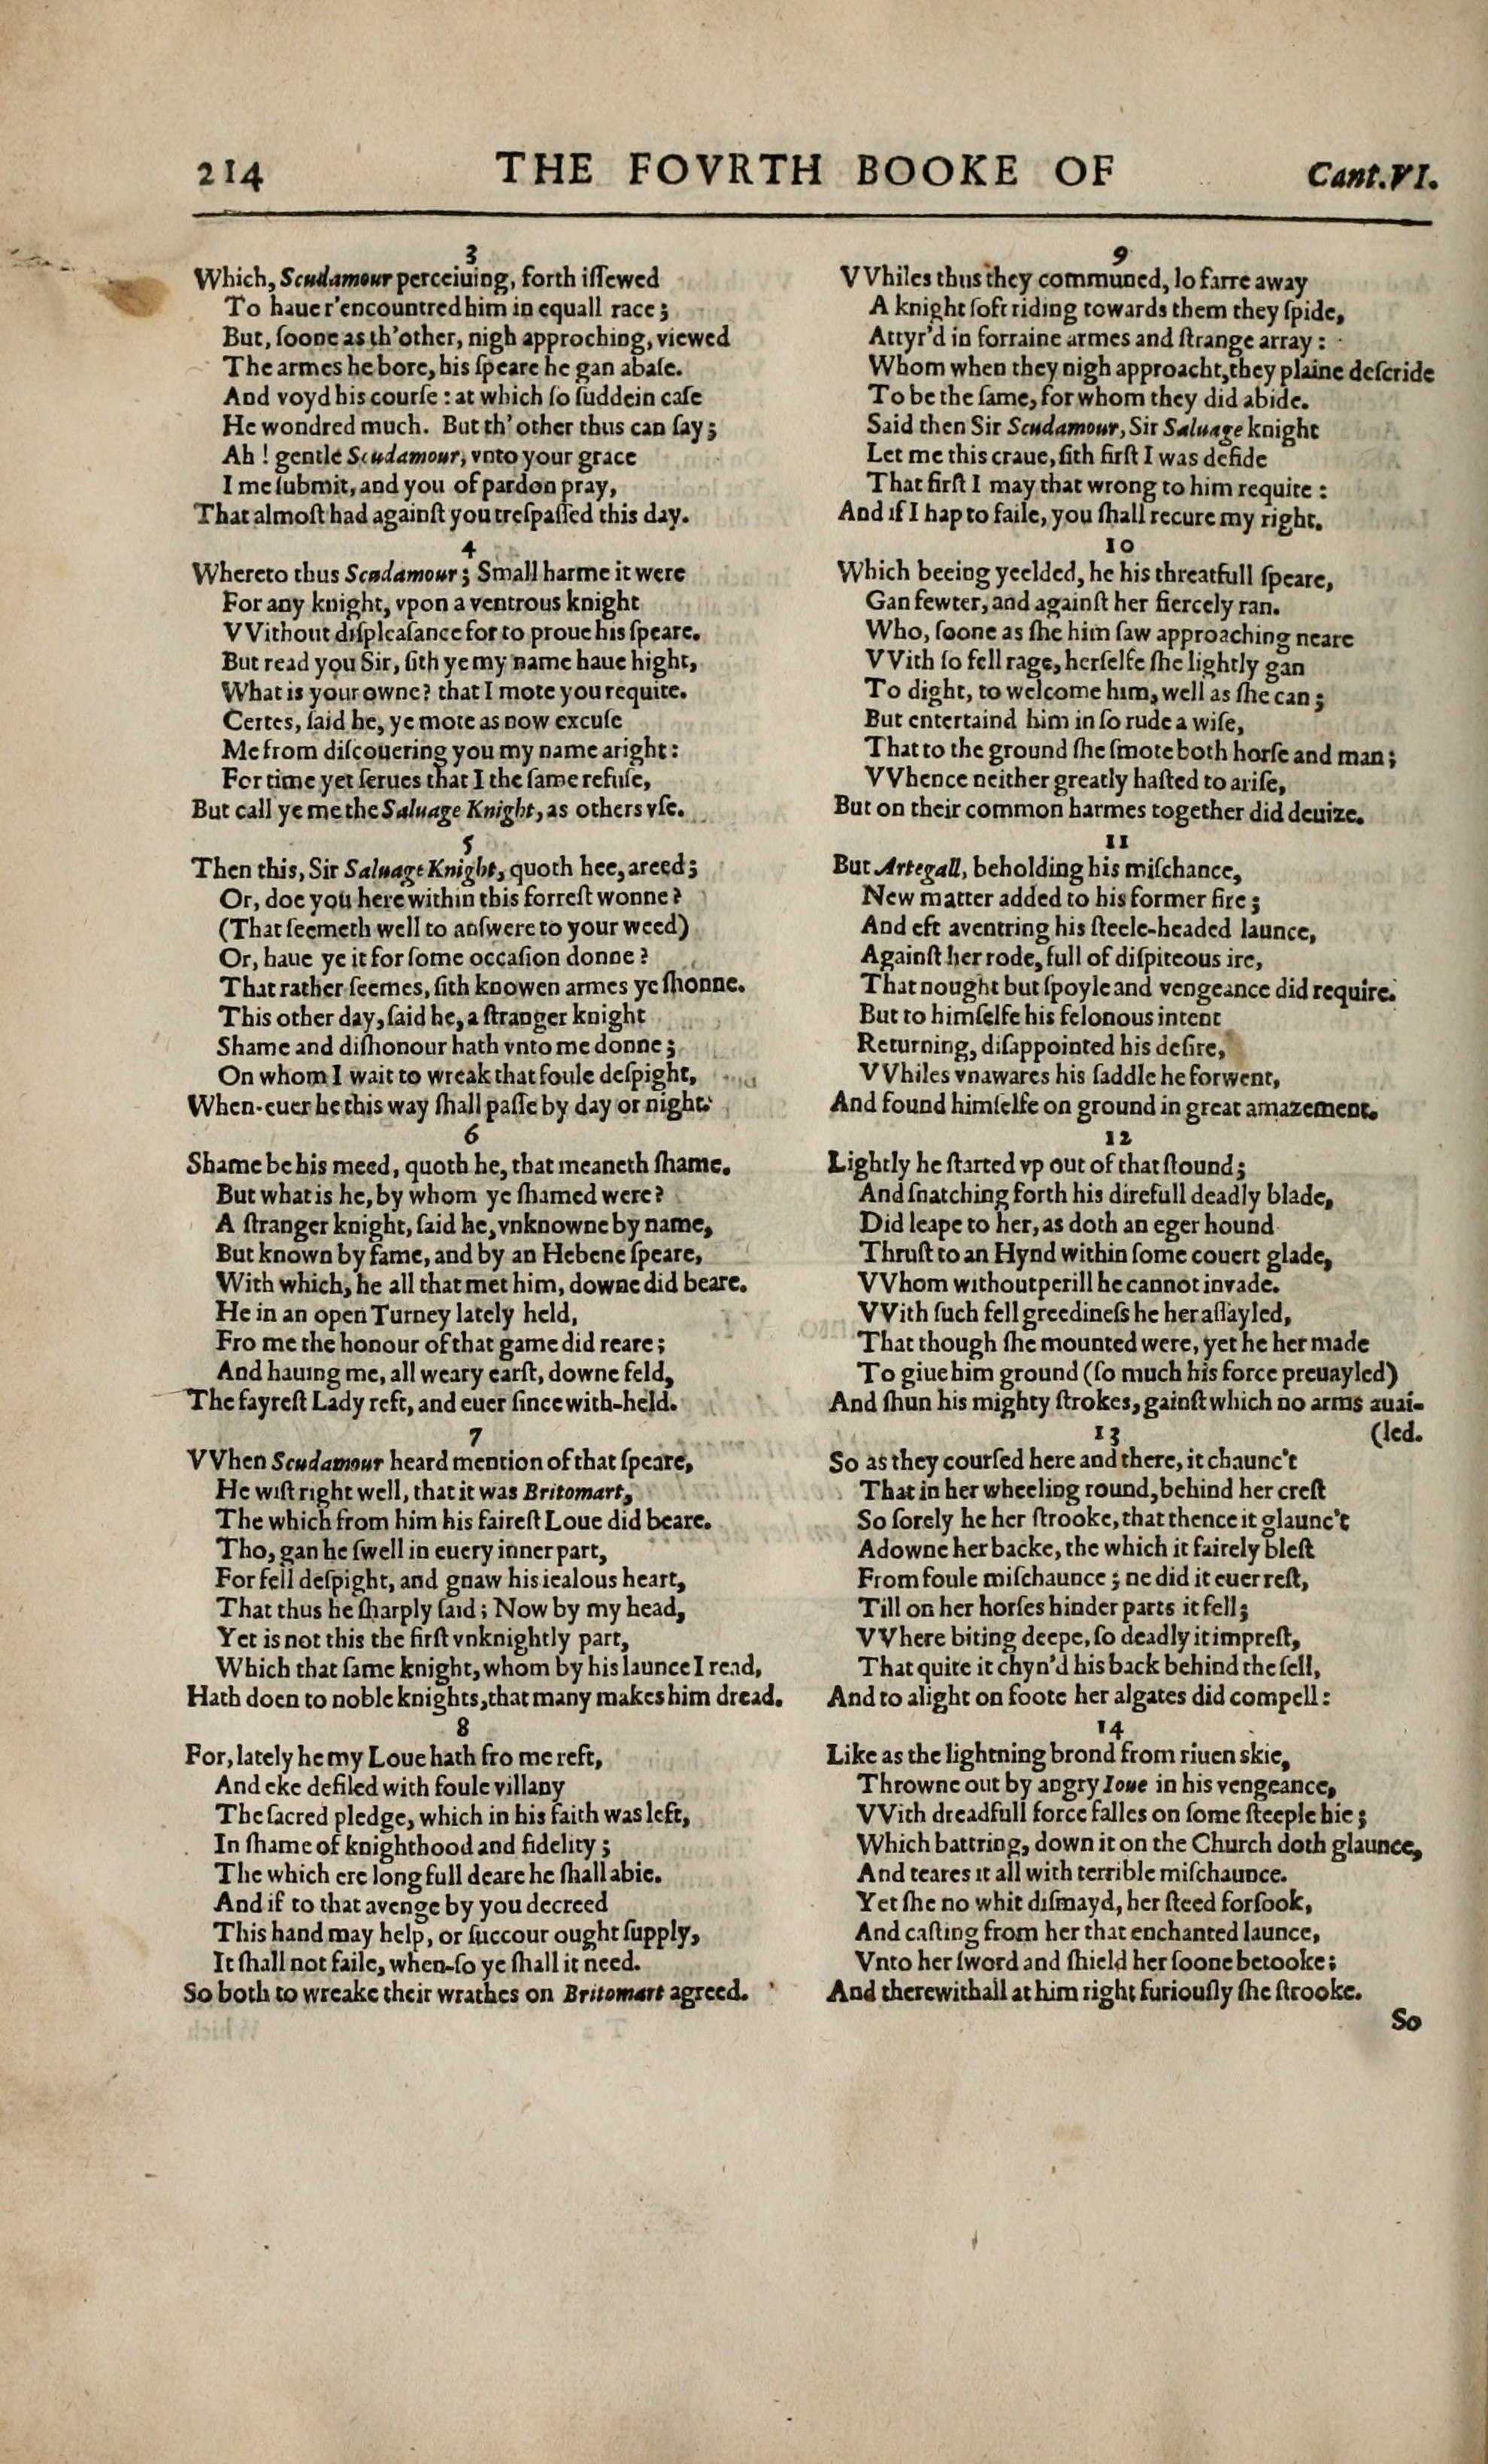 214 THE FOVRTH BOOKE OF Cant.VI.
3
Which, Scudamour perceiuing, forth iſſewed
To haue r'encountred him in equall race;
But, ſoone as th'other, nigh approching, viewed
The armes he bore, his ſpeare he gan abaſe.
And voyd his courſe: at which ſo ſuddein caſe
He wondred much. But th'other thus can ſay;
Ah! gentle Scudamour, vnto your grace
I me ſubmit, and you of pardon pray,
That almoſt had againſt you treſpaſſed this day.
4
Whereto thus Scudamour; Small harme it were
For any knight, vpon a ventrous knight
VVithout diſpleaſance for to proue his ſpeare.
But read you Sir, ſith ye my name haue hight,
What is your owne? that I mote you requite.
Certes, ſaid he, ye mote as now excuſe
Me from diſcouering you my name aright:
For time yet ſerues that I the ſame refuſe,
But call ye me the Saluage Knight, as others vſe.
5
Then this, Sir Saluage Knight, quoth hee, areed;
Or, doe you here within this forreſt wonne?
(That ſeemeth well to anſwere to your weed)
Or, haue ye it for ſome occaſion donne?
That rather ſeemes, ſith knowen armes ye ſhonne.
This other day, ſaid he, a ſtranger knight
Shame and diſhonour hath vnto me donne;
On whom I wait to wreak that foule deſpight,
When-euer he this way ſhall paſſe by day or night.
6
Shame be his meed, quoth he, that meaneth ſhame.
But what is he, by whom ye ſhamed were?
A ſtranger knight, ſaid he, vnknowne by name,
But known by fame, and by an Hebene ſpeare,
With which, he all that met him, downe did beare.
He in an open Turney lately held,
Fro me the honour of that game did reare;
And hauing me, all weary earſt, downe feld,
The fayreſt Lady reft, and euer ſince with-held.
7
VVhen Scudamour heard mention of that ſpeare,
He wiſt right well, that it was Britomart,
The which from him his faireſt Loue did beare.
Tho, gan he ſwell in euery inner part,
For fell deſpight, and gnaw his iealous heart,
That thus he ſharply ſaid; Now by my head,
Yet is not this the firſt vnknightly part,
Which that ſame knight, whom by his launce I read,
Hath doen to noble knights, that many makes him dread.
8
For, lately he my Loue hath fro me reft,
And eke defiled with foule villany
The ſacred pledge, which in his faith was left,
In ſhame of knighthood and fidelity;
The which ere long full deare he ſhall abie.
And if to that avenge by you decreed
This hand may help, or ſuccour ought ſupply,
It ſhall not faile, when-ſo ye ſhall it need.
So both to wreake their wrathes on Britomart agreed.
9
VVhiles thus they communed, lo farre away
A knight ſoft riding towards them they ſpide,
Attyr'd in forraine armes and ſtrange array:
Whom when they nigh approacht, they plaine deſcride
To be the ſame, for whom they did abide.
Said then Sir Scudamour, Sir Saluage knight
Let me this craue, ſith firſt I was defide
That firſt I may that wrong to him requite:
And if I hap to faile, you ſhall recure my right.
10
Which beeing yeelded, he his threatfull ſpeare,
Gan fewter, and againſt her fiercely ran.
Who, ſoone as ſhe him ſaw approaching neare
VVith ſo fell rage, herſelfe ſhe lightly gan
To dight, to welcome him, well as ſhe can;
But entertaind him in ſo rude a wiſe,
That to the ground ſhe ſmote both horſe and man;
VVhence neither greatly haſted to ariſe,
But on their common harmes together did deuize.
11
But Artegall, beholding his miſchance,
New matter added to his former fire;
And eft aventring his ſteele-headed launce,
Againſt her rode, full of diſpiteous ire,
That nought but ſpoyle and vengeance did require.
But to himſelfe his felonous intent
Returning, diſappointed his deſire,
VVhiles vnawares his ſaddle he forwent,
And found himſelfe on ground in great amazement.
12
Lightly he ſtarted vp out of that ſtound;
And ſnatching forth his direfull deadly blade,
Did leape to her, as doth an eger hound
Thruſt to an Hynd within ſome couert glade,
VVhom without perill he cannot invade.
VVith ſuch fell greedineſs he her aſſayled,
That though ſhe mounted were, yet he her made
To giue him ground (ſo much his force preuayled)
And ſhun his mighty ſtrokes, gainſt which no arms auai-
(led.
13
So as they courſed here and there, it chaunc't
That in her wheeling round, behind her creſt
So ſorely he her ſtrooke, that thence it glaunc't
Adowne her backe, the which it fairely bleſt
From foule miſchaunce; ne did it euer reſt,
Till on her horſes hinder parts it fell;
VVhere biting deepe, ſo deadly it impreſt,
That quite it chyn'd his back behind the ſell,
And to alight on foote her algates did compell:
14
Like as the lightning brond from riuen skie,
Throwne out by angry Ioue in his vengeance,
VVith dreadfull force falles on ſome ſteeple hie;
Which battring, down it on the Church doth glaunce,
And teares it all with terrible miſchaunce.
Yet ſhe no whit diſmayd, her ſteed forſook,
And caſting from her that enchanted launce,
Vnto her ſword and ſhield her ſoone betooke;
And therewithall at him right furiouſly ſhe ſtrooke.
So